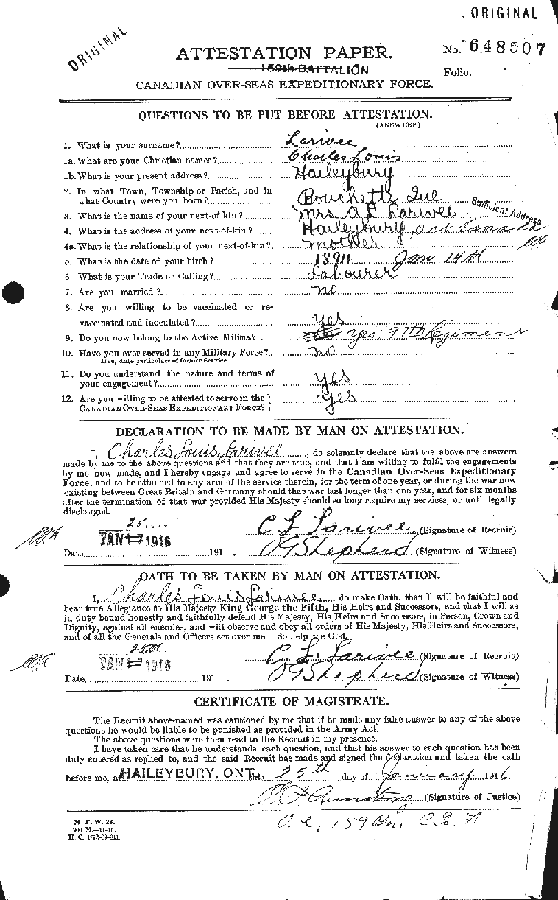 ORIGINAL
ORIGINAL
ATTESTATION PAPER.
No. 648507
159th BATTALION
Folio.
CANADIAN OVER-SEAS EXPEDITIONARY FORCE.
QUESTIONS TO BE PUT BEFORE ATTESTATION.
(ANSWERS)
1. What is your surname? Larivee
1a. What are your Christian names? Charles Louis
1b. What is your present address? Haileybury
2. In what Town, Township or Parish, and in
what Country were you born? Bouchette Que
3. What is the name of your next-of-kin? Mrs Larivee
4. What is the address of your next-of-kin? Haileybury
4a. What is the relationship of your next-of-kin? Mother
5. What is the date of your birth? Jan 14th
6. What is your Trade or Calling? Labourer
7. Are you married? No
8. Are you willing to be vaccinated or re-
vaccinated and inoculated? Yes
9. Do you now belong to the Active Militia? Yes 97th Regiment
10. Have you ever served in any Military Force? No
If so, state particulars of former Service.
11. Do you understand the nature and terms of
your engagement? Yes
12. Are you willing to be attested to serve in the
CANADIAN OVER-SEAS EXPEDITIONARY FORCE? Yes
DECLARATION TO BE MADE BY MAN ON ATTESTATION.
I, Charles Louis Larivee, do solemnly declare that the above are answers
made by me to the above questions and that they are true, and that I am willing to fulfil the engagements
by me now made, and I hereby engage and agree to serve in the Canadian Over-Seas Expeditionary
Force, and to be attached to any arm of the service therein, for the term of one year, or during the war now
existing between Great Britain and Germany should that war last longer than one year, and for six months
after the termination of that war provided His Majesty should so long require my services, or until legally
discharged.
25
C L Larivee (Signature of Recruit)
Date JAN 1916 191 Shepherd (Signature of Witness)
OATH TO BE TAKEN BY MAN ON ATTESTATION.
I, Charles Louis Larivee, do make Oath, that I will be faithful and
bear true Allegiance to His Majesty King George the Fifth, His Heirs and Successors, and that I will as
in duty bound honestly and faithfully defend His Majesty, His Heirs and Successors, in Person, Crown and
Dignity, against all enemies, and will observe and obey all orders of His Majesty, His Heirs and Successors,
and of all the Generals and Officers set over me. So help me God.
25th
C. L. Larivee (Signature of Recruit)
Date, 1916 191 Shepherd (Signature of Witness)
CERTIFICATE OF MAGISTRATE.
The Recruit above-named was cautioned by me that if he made any false answer to any of the above
questions he would be liable to be punished as provided in the Army Act.
The above questions were then read to the Recruit in my presence.
I have taken care that he understands each question, and that his answer to each question has been
duly entered as replied to, and the said Recruit has made and signed the declaration and taken the oath
before me, at HAILEYBURY, ONT. this 25th day of January 1916
(Signature of Justice)
M. F. W. 23.
O.C. 159 Bn. C.E.F.